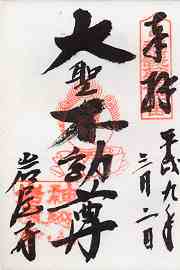 奉拝
平成九年
三月二日
大聖不動尊
岩屋寺